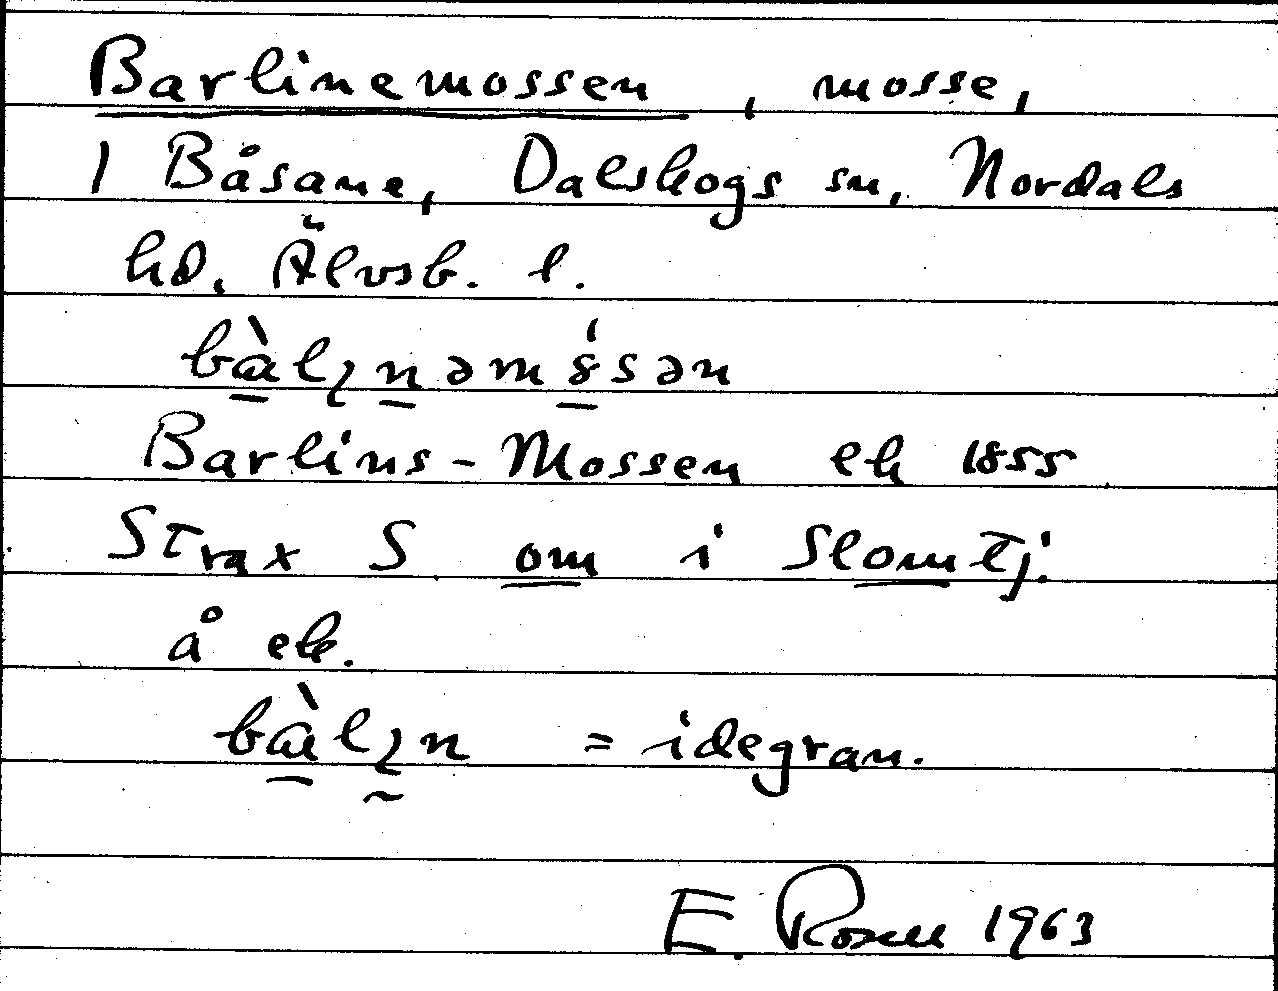 Barlinemossen, mosse,
1 Båsane, Dalskogs sn, Nordals
hd, Älvsb. l.
Barlins-Mossen ek 1855
Strax S om i Slomtj.
å ek.
= idegran.
E. 1963